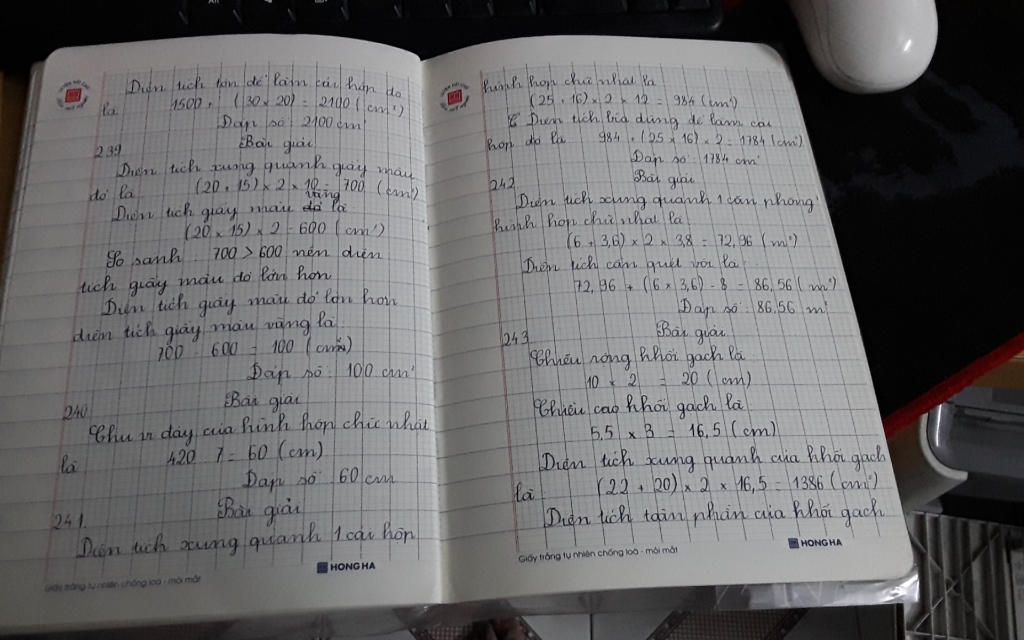 Diện tích tôn để làm cái hộp đó
là 1500 + (30 × 20) = 2100 (cm²)
Đáp số: 2100 cm²
239 Bài giải
Diện tích xung quanh giấy màu
đỏ là (20 + 15) × 2 × 10 = 700 (cm²)
vàng
Diện tích giấy màu đỏ là
(20 × 15) × 2 = 600 (cm²)
So sánh: 700 > 600 nên diện
tích giấy màu đỏ lớn hơn
Diện tích giấy màu đỏ lớn hơn
diện tích giấy màu vàng là:
700 - 600 = 100 (cm²)
Đáp số: 100 cm²
240 Bài giải
Chu vi đáy của hình hộp chữ nhật
là 420 : 7 = 60 (cm)
Đáp số: 60 cm
241. Bài giải
Diện tích xung quanh 1 cái hộp
Giấy trắng tự nhiên chống loá - mỏi mắt
HONG HA
hình hộp chữ nhật là
(25 + 16) × 2 × 12 = 984 (cm²)
Diện tích bìa dùng để làm cái
hộp đó là 984 + (25 × 16) × 2 = 1784 (cm²)
Đáp số: 1784 cm²
242 Bài giải
Diện tích xung quanh 1 căn phòng
hình hộp chữ nhật là:
(6 + 3,6) × 2 × 3,8 = 72,96 (m²)
Diện tích cần quét vôi là:
72,96 + (6 × 3,6) - 8 = 86,56 (m²)
Đáp số: 86,56 m²
243 Bài giải
Chiều rộng khối gạch là
10 × 2 = 20 (cm)
Chiều cao khối gạch là
5,5 × 3 = 16,5 (cm)
Diện tích xung quanh của khối gạch
là (22 + 20) × 2 × 16,5 = 1386 (cm²)
Diện tích toàn phần của khối gạch
Giấy trắng tự nhiên chống loá - mỏi mắt
HONG HA